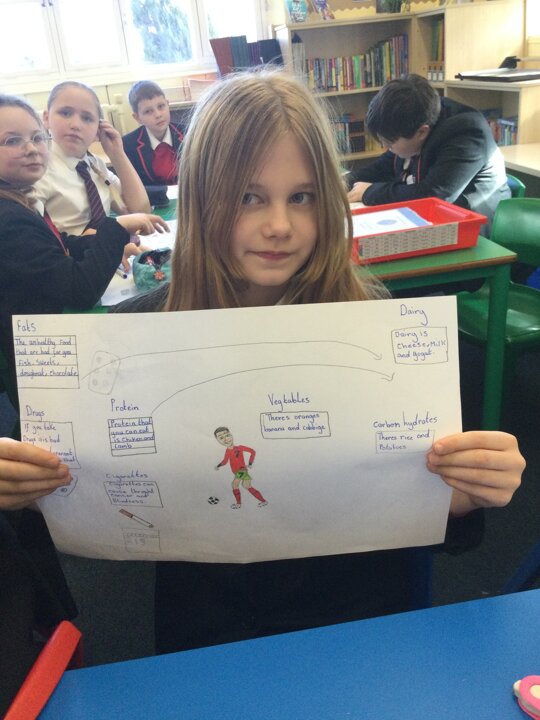 Fats
The unhealthy food
that are bad for you
Fish, Sweets,
doughnut, chocolate
Dairy
Dairy is
Cheese, Milk
and yogut.
Drugs
If you take
Drugs it is bad
Protein
Protein that
you can eat
is Chiken and
Lamb
Vegtables
Theres oranges
banana and cabbige
Carbon hydrates
Theres rice and
Potatoes
Cigarettes
Cigarettes can
cause throght
cancer and
Blindness